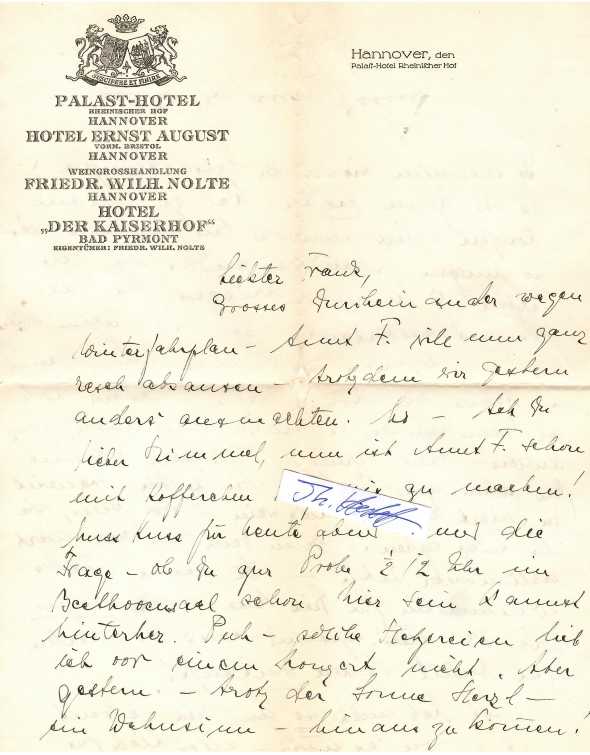 SUSCIPERE ET FINIRE
PALAST-HOTEL
RHEINISCHER HOF
HANNOVER
HOTEL ERNST AUGUST
VORM. BRISTOL
HANNOVER
WEINGROSSHANDLUNG
FRIEDR. WILH. NOLTE
HANNOVER
HOTEL
„DER KAISERHOF“
BAD PYRMONT
EIGENTÜMER: FRIEDR. WILH. NOLTE
Hannover, den
Palast-Hotel Rheinischer Hof
Liebster Franz,
Grosses Durcheinander wegen
Winterfahrplan – Amt F. will nun ganz
rasch absausen – trotzdem wir gestern
anders ausmachten. So – Ach Du
lieber Himmel, nun ist F. schon
mit Kofferchen zu machen!
Kuss für heute aber nur die
Frage – ob Du zur Probe ½ 12 Uhr im
Beethovensaal schon hier sein kannst
hinterher. Puh – solche Hetzereien lieb
ich vor einem Konzert nicht. Aber
gestern – trotz der Sonne Herzl –
ein Wahnsinn – hinaus zu kommen!